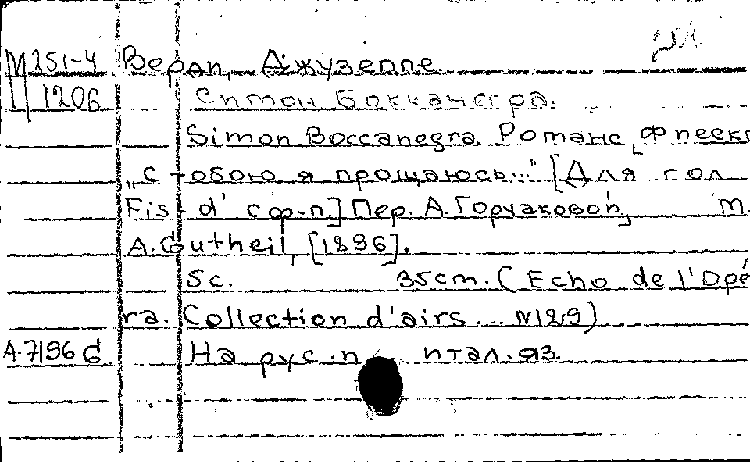 М251-4 Верди, Джузеппе
1206 Симон Бокканегра.
Simon Boccanegra. Романс Фиеско
„С тобою я прощаюсь..." [Для гол.
Fis - d' с ф-п] Пер. А. Горчаковой, М.
A. Gutheil, [1896].
5с. 35cm. (Echo de l'Opé
ra. Collection d'airs... №129)
А-7196 G На рус. и итал. яз.